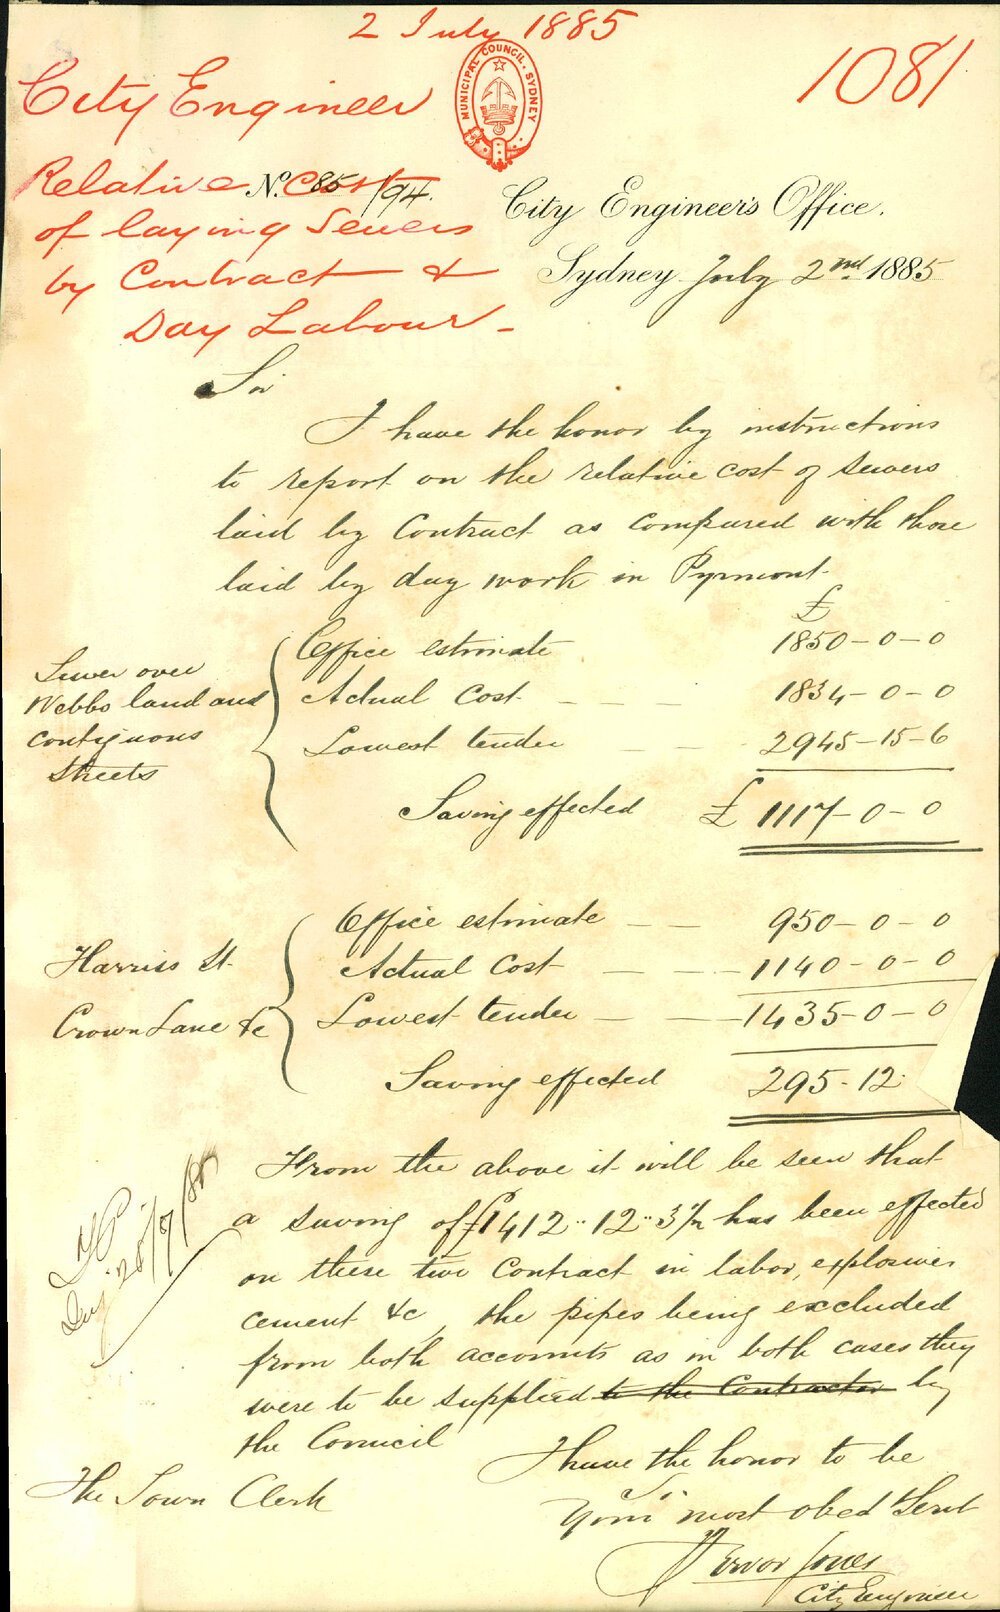 2 July 1885
1081
City Engineer
MUNICIPAL COUNCIL. SYDNEY
Relative Cost
of laying Sewers
by Contract &
Day Labour -
No. 85/94.
City Engineer's Office.
Sydney July 2nd 1885
Sir
I have the honor by instructions
to report on the relative cost of sewers
laid by Contract as compared with those
laid by day work in Pyrmont
£
Sewer over
Webbs land and
contiguous
streets
Office estimate 1850-0-0
Actual Cost - - - 1834-0-0
Lowest tender - - - 2945-15-6
Saving effected £ 1117-0-0
Harriss St.
Crown Lane &c
Office estimate - - 950-0-0
Actual Cost - - - 1140-0-0
Lowest tender - - - 1435-0-0
Saving effected 295-12
From the above it will be seen that
a saving of £1412..12..3 has been effected
on these two Contract in labor, explosives
cement &c, the pipes being excluded
from both accounts as in both cases they
were to be supplied to the Contractor by
the Council
28/7/85
I have the honor to be
Sir
Your most obed Servt
Trevor Jones
City Engineer
The Town Clerk